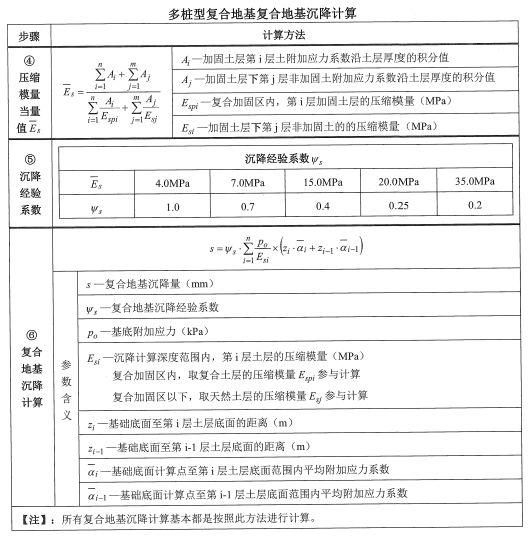 多桩型复合地基复合地基沉降计算
步骤 计算方法
④
压缩
模量
当量
值 E̅s
E̅s = (∑(i=1→n) Ai + ∑(j=1→m) Aj) / (∑(i=1→n) Ai/Espi + ∑(j=1→m) Aj/Esj)
Ai —加固土层第 i 层土附加应力系数沿土层厚度的积分值
Aj —加固土层下第 j 层非加固土附加应力系数沿土层厚度的积分值
Espi —复合加固区内，第 i 层加固土层的压缩模量（MPa）
Esi —加固土层下第 j 层非加固土的的压缩模量（MPa）
⑤
沉降
经验
系数
沉降经验系数 ψs
E̅s 4.0MPa 7.0MPa 15.0MPa 20.0MPa 35.0MPa
ψs 1.0 0.7 0.4 0.25 0.2
⑥
复合
地基
沉降
计算
s = ψs · ∑(i=1→n) po/Esi × (zi · α̅i + zi−1 · α̅i−1)
参
数
含
义
s —复合地基沉降量（mm）
ψs —复合地基沉降经验系数
po —基底附加应力（kPa）
Esi —沉降计算深度范围内，第 i 层土层的压缩模量（MPa）
复合加固区内，取复合土层的压缩模量 Espi 参与计算
复合加固区以下，取天然土层的压缩模量 Esj 参与计算
zi —基础底面至第 i 层土层底面的距离（m）
zi−1 —基础底面至第 i-1 层土层底面的距离（m）
α̅i —基础底面计算点至第 i 层土层底面范围内平均附加应力系数
α̅i−1 —基础底面计算点至第 i-1 层土层底面范围内平均附加应力系数
【注】：所有复合地基沉降计算基本都是按照此方法进行计算。